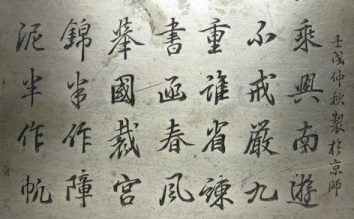 壬戌仲秋製於京師
乘興南遊
不戒嚴九
重誰省諫
書函春風
舉國裁宮
錦半作障
泥半作帆